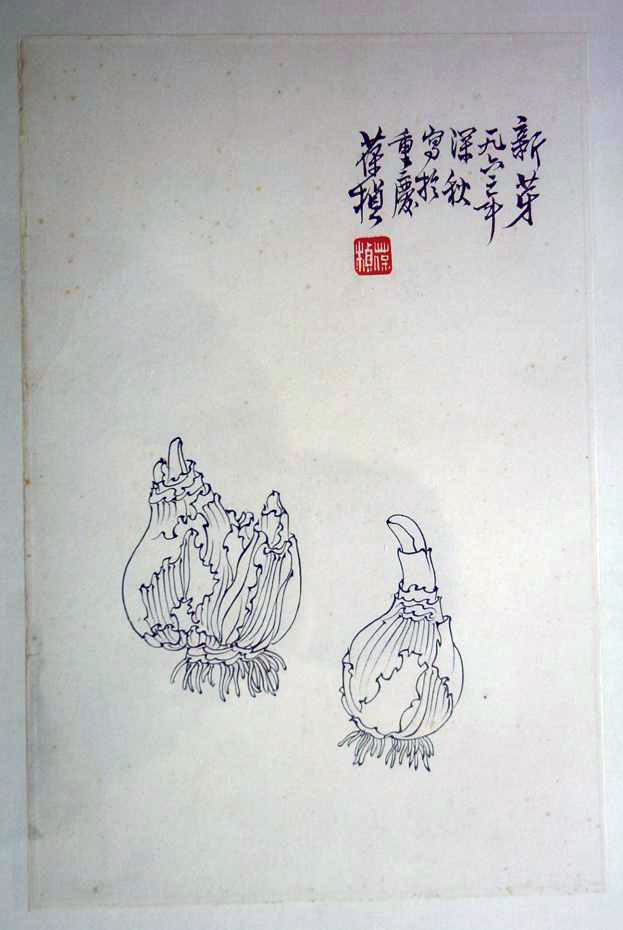 新芽
一九六三年
深秋
寫於
重慶
葆楨
葆楨